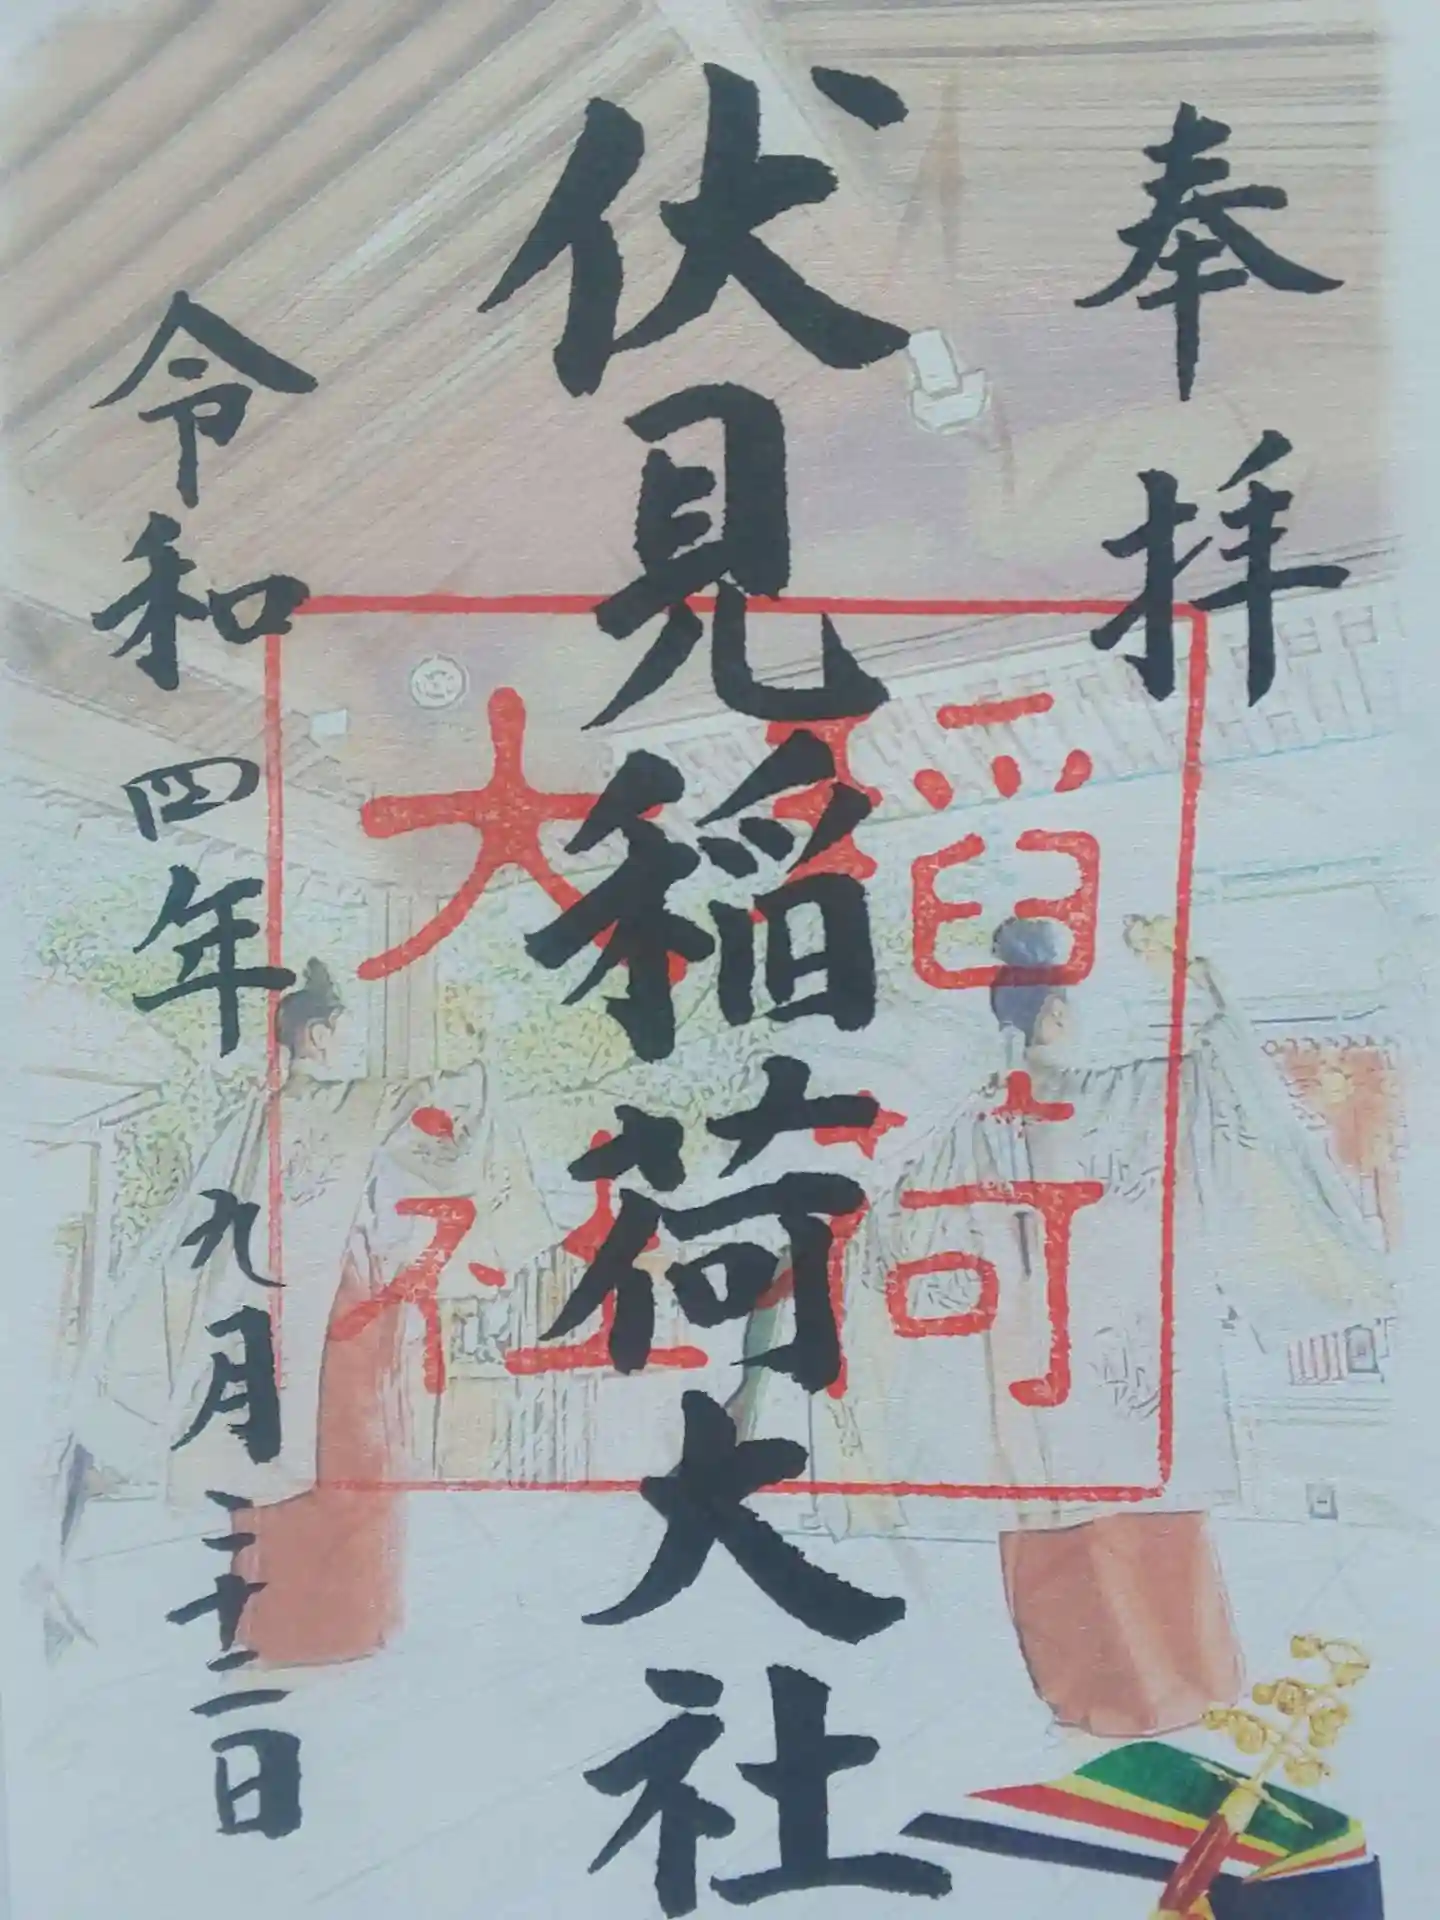 奉拝
伏見稲荷大社
稲荷
大社
令和四年九月二十二日